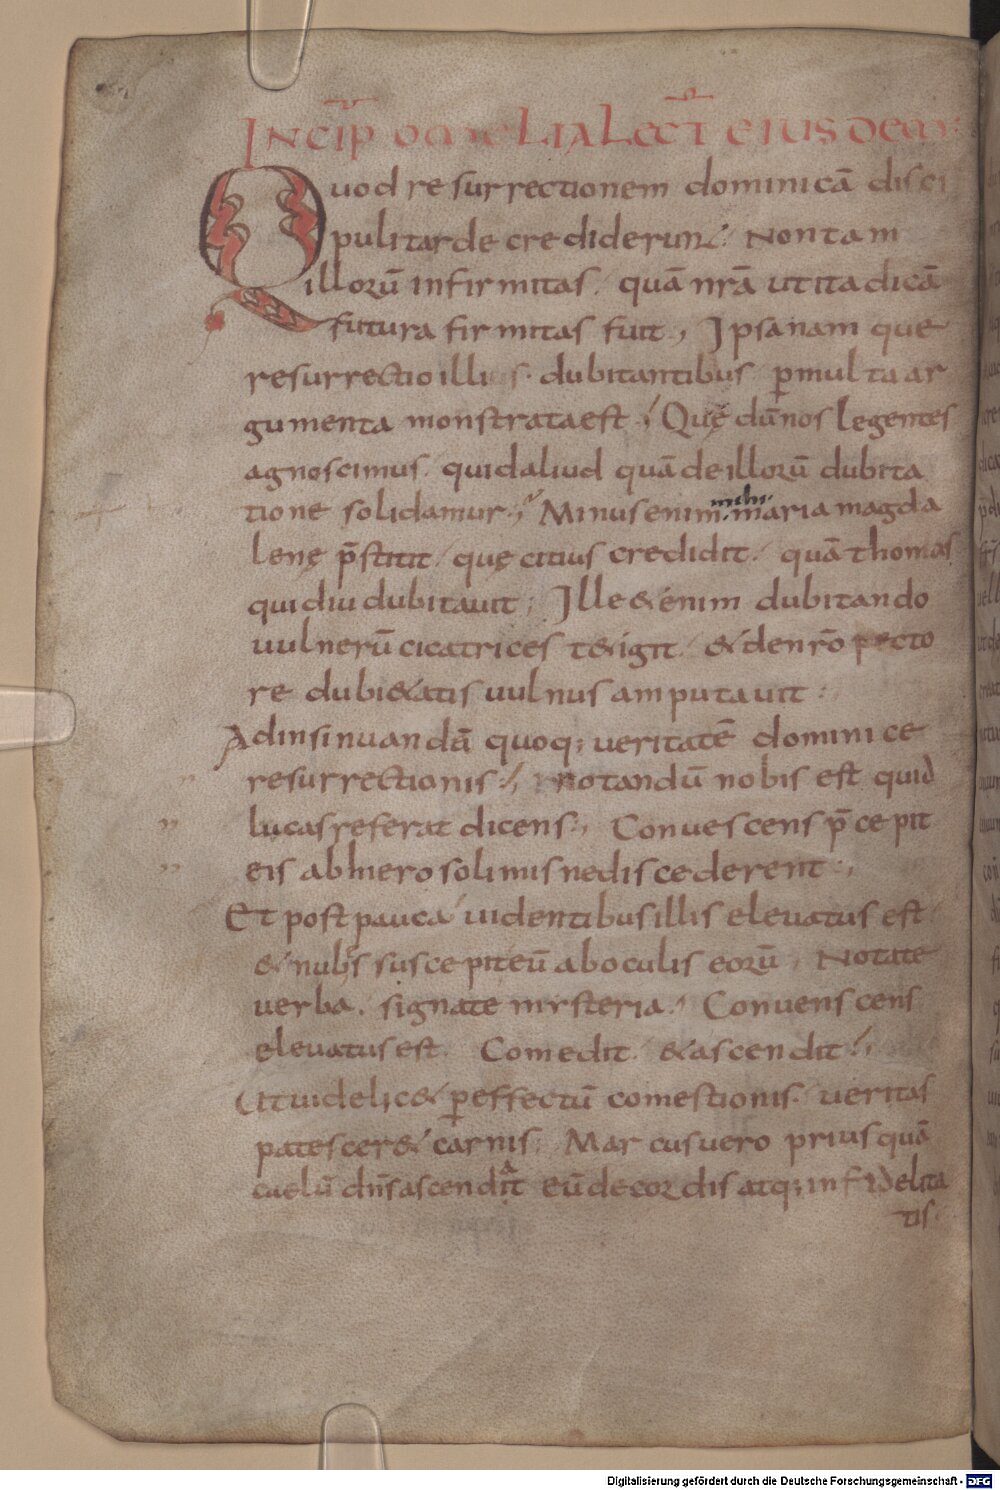 INCIP OMELIA LECT EIUSDEM
Quod resurrectionem dominicā disci
puli tarde crediderunt; Non tam
illorū infirmitas. quā nrā ut ita dicā
futura firmitas fuit; Ipsa nam que
resurrectio illius. dubitantibus p̱ multa ar
gumenta monstrata est; Quę dū nos legentes
agnoscimus. quid aliud quā de illorū dubita
tione solidamur; Minus enim mihi maria magda
lenę p̄stitit. quę citius credidit. quā thomas
qui diu dubitauit; Ille & enim dubitando
uulnerū cicatrices t&igit. & de nrō pecto
re dubi&atis uulnus amputauit:
Ad insinuandā quoq; ueritatē dominice
resurrectionis; notandū nobis est quid
lucas referat dicens; Conuescens p̄cepit
eis ab hierosolimis ne discederent;
Et post pauca uidentibus illis eleuatus est
& nubes suscepit eū ab oculis eorū; Notate
uerba. signate mysteria. Conuenscens
eleuatus est. Comedit. & ascendit;
Ut uidelic& p̱ effectū comestionis. ueritas
patescer& carnis; Marcus uero priusquā
caelū dn̄s ascendat eū de cordis atq; infidelita
tis.
Digitalisierung gefördert durch die Deutsche Forschungsgemeinschaft - DFG